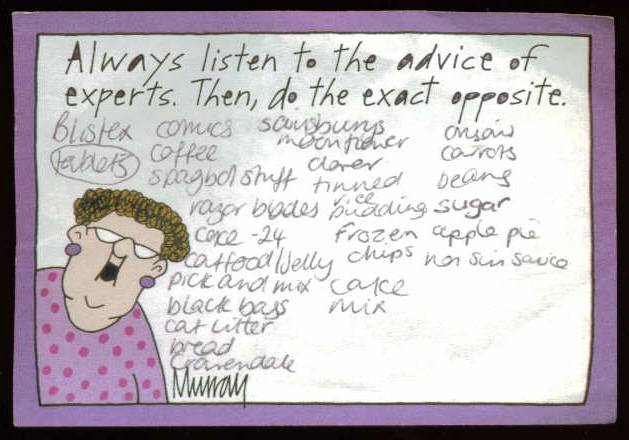 Always listen to the advice of
experts. Then, do the exact opposite.
Blistex
tablets
comics
coffee
spagbol stuff
razor blades
coke - 24
catfood/jelly
pick and mix
black bags
cat litter
bread
Cravendale
sainsburys
moon tiover
clover
tinned
rice
pudding
frozen
chips
cake
mix
carrots
beans
sugar
apple pie
hoi sin sauce
Murray